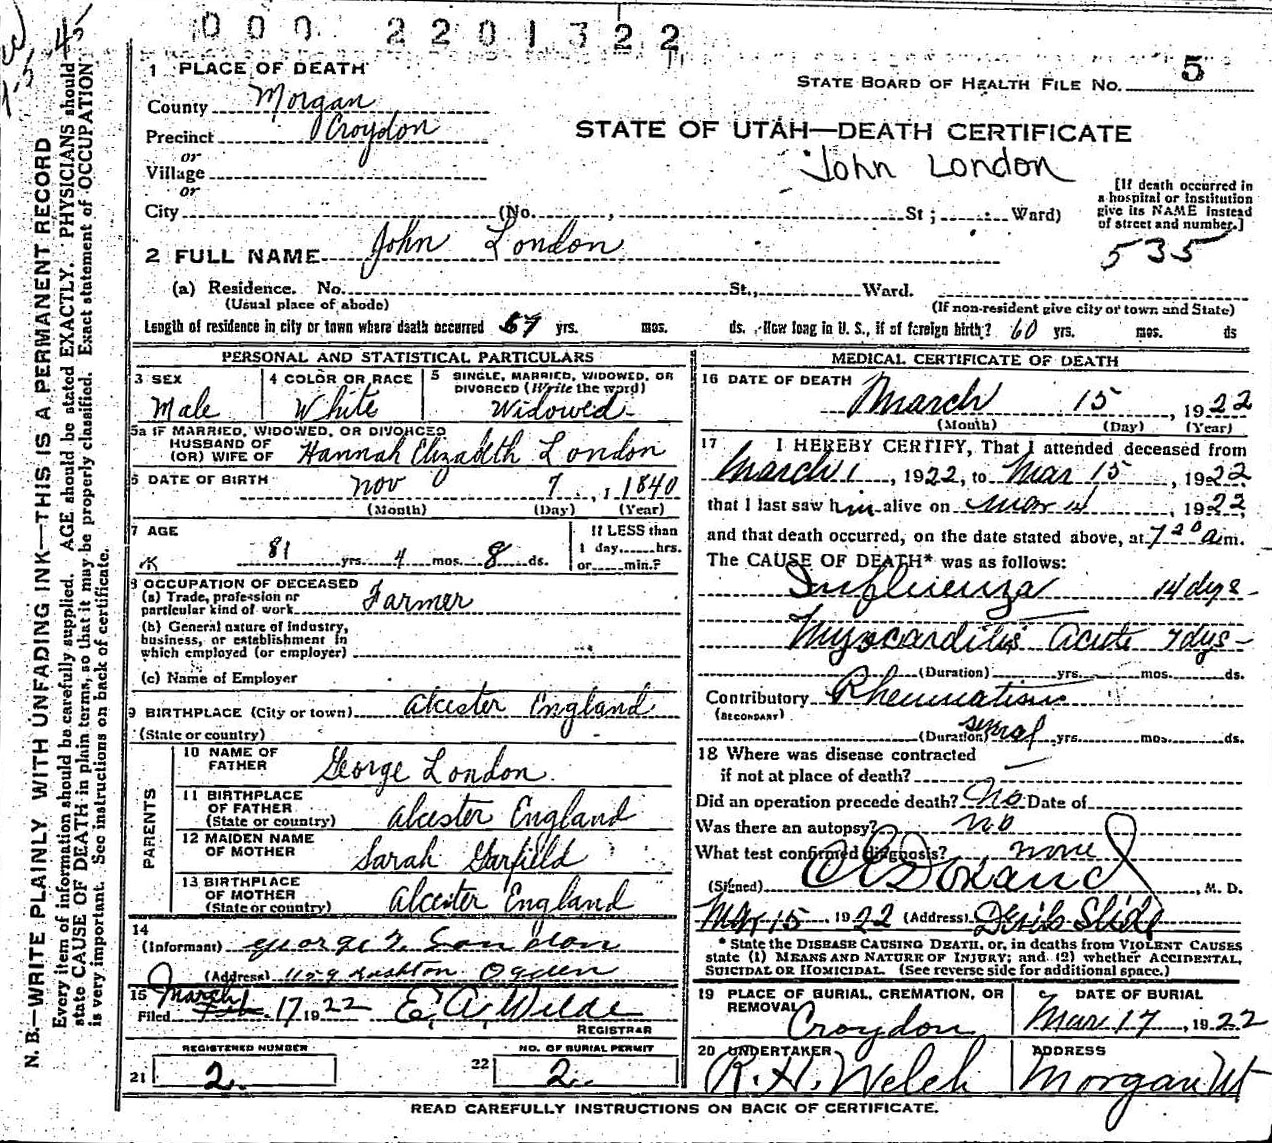 000 2201322
1 PLACE OF DEATH
STATE BOARD OF HEALTH FILE NO. 5
County Morgan
Precinct Croydon
STATE OF UTAH—DEATH CERTIFICATE
or
Village
John London
or
City (No. , St; Ward)
[If death occurred in
a hospital or institution
give its NAME instead
of street and number.]
535
2 FULL NAME John London
(a) Residence. No. St., Ward.
(Usual place of abode) (If non-resident give city or town and State)
Length of residence in city or town where death occurred 57 yrs. mos. ds. How long in U. S., if of foreign birth? 60 yrs. mos. ds
PERSONAL AND STATISTICAL PARTICULARS
3 SEX
Male
4 COLOR OR RACE
White
5 SINGLE, MARRIED, WIDOWED, OR
DIVORCED (Write the word)
Widowed
5a IF MARRIED, WIDOWED, OR DIVORCED
HUSBAND OF
(OR) WIFE OF Hannah Elizabeth London
6 DATE OF BIRTH Nov 7, 1840
(Month) (Day) (Year)
7 AGE
81 yrs. 4 mos. 8 ds.
If LESS than
1 day......hrs.
or......min.?
8 OCCUPATION OF DECEASED
(a) Trade, profession or
particular kind of work Farmer
(b) General nature of industry,
business, or establishment in
which employed (or employer)
(c) Name of Employer
9 BIRTHPLACE (City or town) Alcester England
(State or country)
PARENTS
10 NAME OF
FATHER George London
11 BIRTHPLACE
OF FATHER
(State or country) Alcester England
12 MAIDEN NAME
OF MOTHER Sarah Garfield
13 BIRTHPLACE
OF MOTHER
(State or country) Alcester England
14
(Informant) George London
(Address) Ogden
15
Filed March 17 1922 E. A. Wilde
REGISTRAR
REGISTERED NUMBER
21 2
NO. OF BURIAL PERMIT
22 2
MEDICAL CERTIFICATE OF DEATH
16 DATE OF DEATH
March 15, 1922
(Month) (Day) (Year)
17 I HEREBY CERTIFY, That I attended deceased from
March 1, 1922, to Mar 15, 1922
that I last saw him alive on Mar 14, 1922,
and that death occurred, on the date stated above, at 7 20 a.m.
The CAUSE OF DEATH* was as follows:
Influenza 14 dys-
Myocarditis Acute 7 dys-
(Duration) yrs. mos. ds.
Contributory Rheumatism
(SECONDARY)
(Duration) several yrs. mos. ds.
18 Where was disease contracted
if not at place of death?
Did an operation precede death? No Date of
Was there an autopsy? no
What test confirmed diagnosis? none
(Signed) , M. D.
Mar 15 1922 (Address) Devils Slide
* State the DISEASE CAUSING DEATH, or, in deaths from VIOLENT CAUSES
state (1) MEANS AND NATURE OF INJURY; and (2) whether ACCIDENTAL,
SUICIDAL OR HOMICIDAL. (See reverse side for additional space.)
19 PLACE OF BURIAL, CREMATION, OR
REMOVAL
Croydon
DATE OF BURIAL
Mar 17, 1922
20 UNDERTAKER
R. H. Welch
ADDRESS
Morgan Ut
READ CAREFULLY INSTRUCTIONS ON BACK OF CERTIFICATE.
N. B.—WRITE PLAINLY WITH UNFADING INK—THIS IS A PERMANENT RECORD
Every item of information should be carefully supplied. AGE should be stated EXACTLY. PHYSICIANS should
state CAUSE OF DEATH in plain terms, so that it may be properly classified. Exact statement of OCCUPATION
is very important. See instructions on back of certificate.